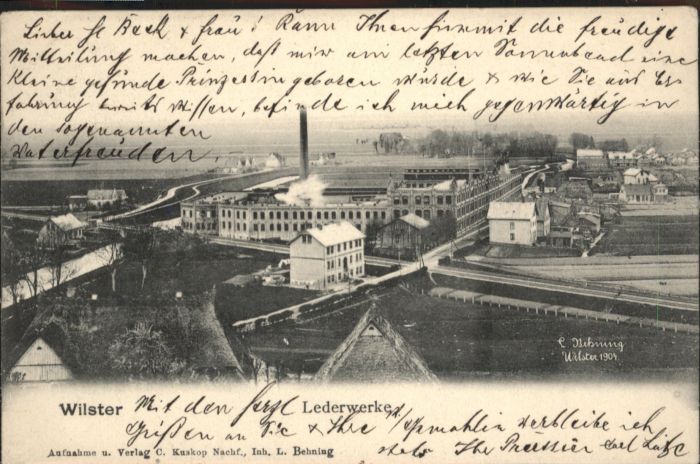 Lieber H. Back & Frau! Kann Ihnen hiermit die freudige
Mitteilung machen, daß mir am letzten Sonnenbend eine
kleine gesunde Prinzessin geboren wurde & wie Sie aus Er-
fahrung bereits wissen, befinde ich mich gegenwärtig in
den sogenannten
Vaterfreuden.
Behning
Wilster 1904.
Wilster Lederwerke
Mit den herzl.
Grüßen an Sie & Ihre Gemahlin verbleibe ich
stets Ihr Carl
Aufnahme u. Verlag C. Kuskop Nachf., Inh. L. Behning